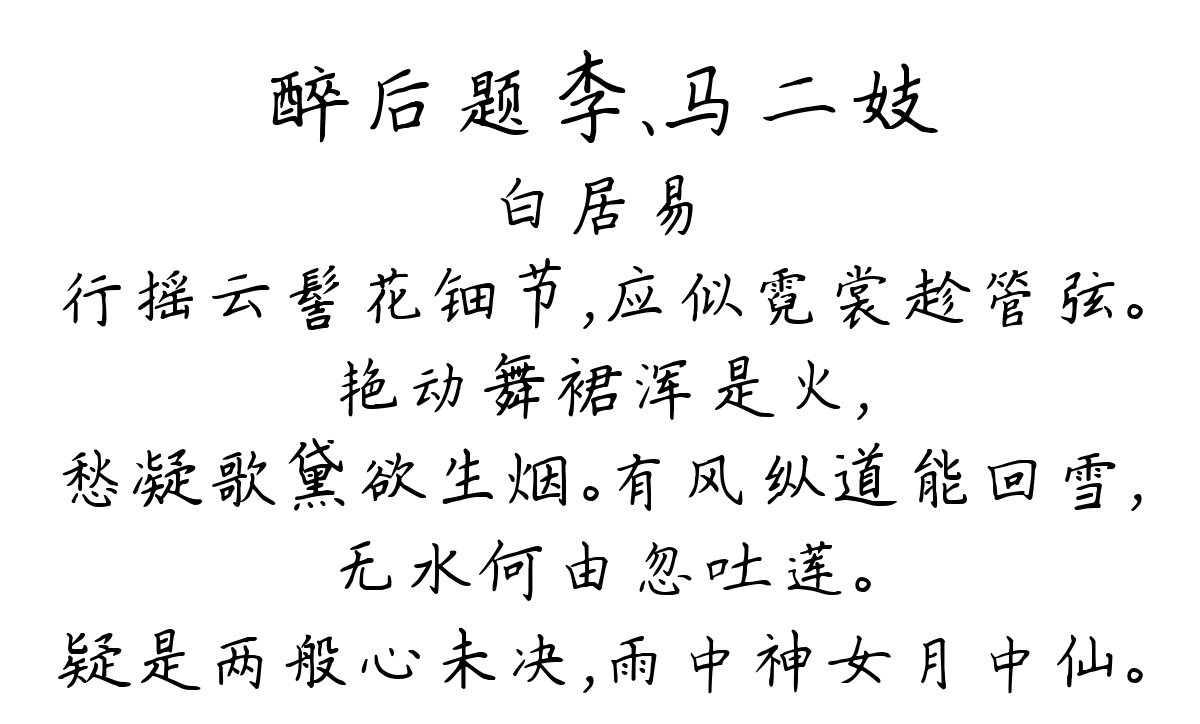 醉后题李、马二妓
白居易
行摇云髻花钿节,应似霓裳趁管弦。
艳动舞裙浑是火,
愁凝歌黛欲生烟。有风纵道能回雪,
无水何由忽吐莲。
疑是两般心未决,雨中神女月中仙。